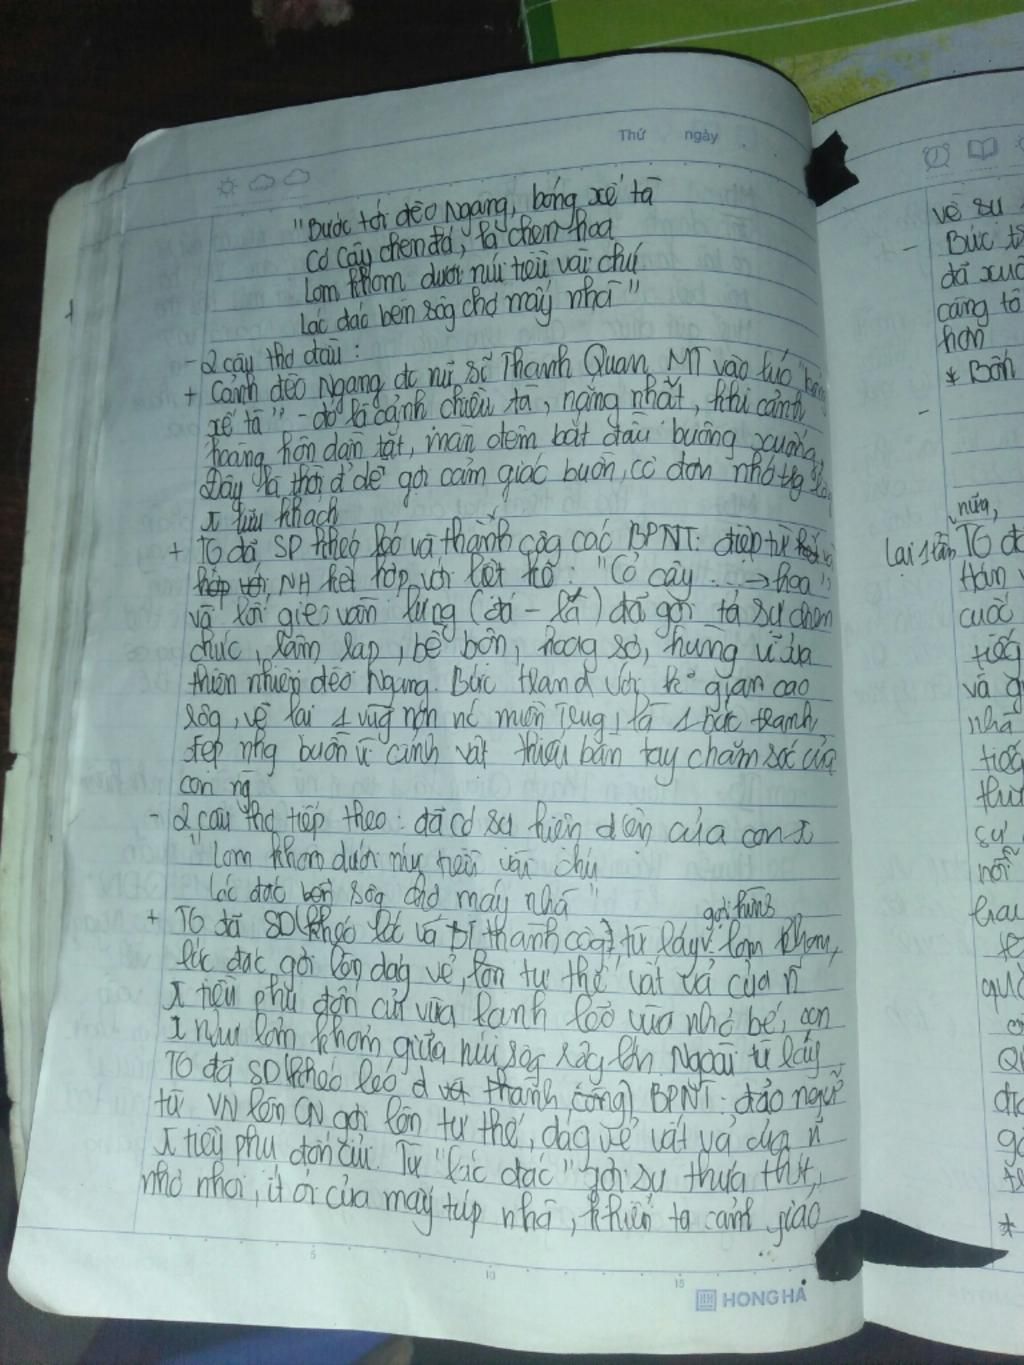 Thứ ngày
"Bước tới đèo Ngang, bóng xế tà
Cỏ cây chen đá, lá chen hoa
Lom khom dưới núi tiều vài chú
Lác đác bên sôg chợ mấy nhà"
- 2 câu thơ đầu:
+ Cảnh đèo Ngang đc nữ sĩ Thanh Quan MT vào lúc "bóng
xế tà" - đó là cảnh chiều tà, nặng nhất, khi cảnh
hoàng hôn dần tắt, màn đêm bắt đầu buông xuống.
Đây là thời đ' dễ gợi cảm giác buồn, cô đơn nhớ
lữu khách
+ TG đã SD khéo léo và thành côg các BPNT: điệp từ
NH kết hợp với liệt kê: "Cỏ cây ... → hoa"
và lối gieo vần lưng (đá - lá) đã gợi tả sự chen
chúc, rậm rạp, bề bộn, hoag sơ, hùng vĩ của
thiên nhiên đèo Ngang. Bức tranh với gian cao
rôg, vẽ lại 1 vùg non nc muôn là 1 bức tranh
đẹp nhg buồn vì cảnh vật thiếu bàn tay chăm sóc của
con ng
- 2 câu thơ tiếp theo: đã có sự hiện diện của con
"Lom khom dưới núi tiều vài chú
Lác đác bên sôg chợ mấy nhà"
gợi hình
+ TG đã SD (khéo léo và thành côg) từ láy lom khom,
lác đác gợi lên dág vẻ, lên tư thế vất vả của
tiều phu đốn củi vừa lanh vừa nhỏ bé, con
như lom khom giữa núi sôg rộg lớn. Ngoài từ láy
TG đã SD (khéo léo thành công) BPNT: đảo ngữ
từ VN lên CN gợi lên tư thế, dág vẻ vất vả của
tiều phu đốn củi. Từ "lác đác" gợi sự thưa thớt,
nhỏ nhoi, ít ỏi của mấy túp nhà, khiến ta cảnh giao
HONG HA
5
10
15
về sự
- Bức
đã
càng tô
hơn
* Bốn
-
nữa,
lại 1 lần TG
cuối
và
nhà
sự
*